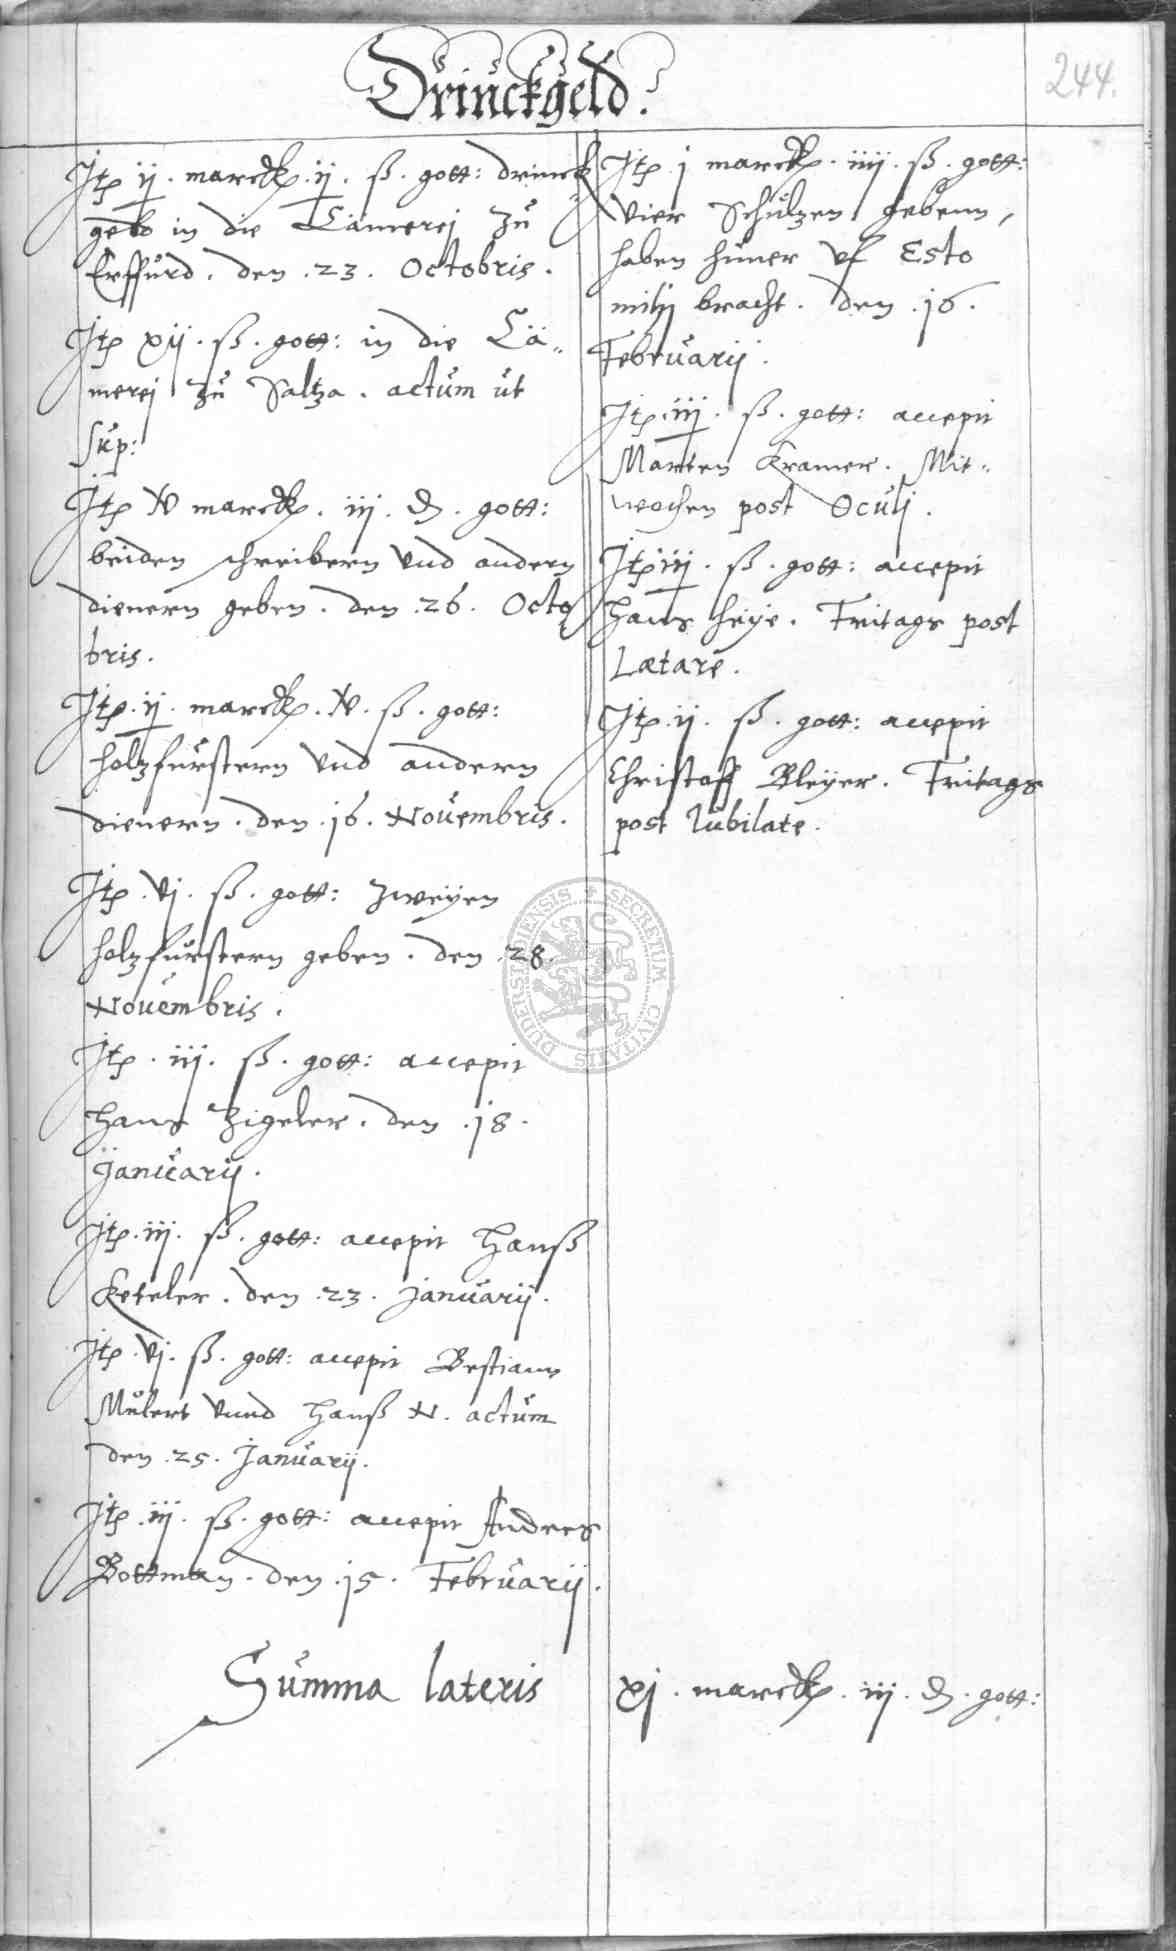 Drinckgeld.
244.
Itē ij. marck. ij. ß. gott: drinck
geld in die Cämerej zu
Erffurd. den .23. Octobris.
Itē xij. ß. gott: in die Cä„
merej zu Saltza. actum ut
sup:
Itē v marck. iij. ₰. gott:
beiden schreibern vnd andern
dienern geben. den .26. Octo
bris.
Itē. ij. marck. v. ß. gott:
holzfurstern vnd andern
dienern. den .16. Nouembris.
Itē. vj. ß. gott: zweyen
holzfurstern geben. den .28.
Nouembris.
Itē. iij. ß. gott: accepit
Hans Zigeler. den .18.
Januarij.
Itē. iij. ß. gott: accepit Hanß
Keteler. den .23. Januarij.
Itē. vj. ß. gott: accepit Bestian
Mulert vnnd Hanß N. actum
den .25. Januarij.
Itē. iij. ß. gott: accepit Andres
Bottman. den .15. Februarij.
Itē. j marck. iiij. ß. gott:
vier Schultzen gebenn,
haben huner vf Esto
mihj bracht. den .16.
Februarij.
Itē. iij. ß. gott: accepit
Marten Kramer. Mit„
wochen post Oculj.
Itē iij. ß. gott: accepit
Hans Heye. Fritags post
Lætare.
Itē. ij. ß. gott: accepit
Christoff Bleyer. Fritags
post Iubilate.
Summa lateris xj. marck. iij. ₰. gott:
SECRETUM CIVITATIS DUDERSTADIENSIS